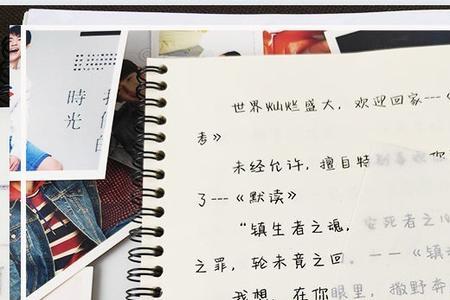 時光
世界灿烂盛大，欢迎回家---《
考》
未经允许，擅自特别喜欢你
了---《默读》
“镇生者之魂，安死者之心
之罪，轮未竟之回。---《镇
我想，在你眼里，撒野奔